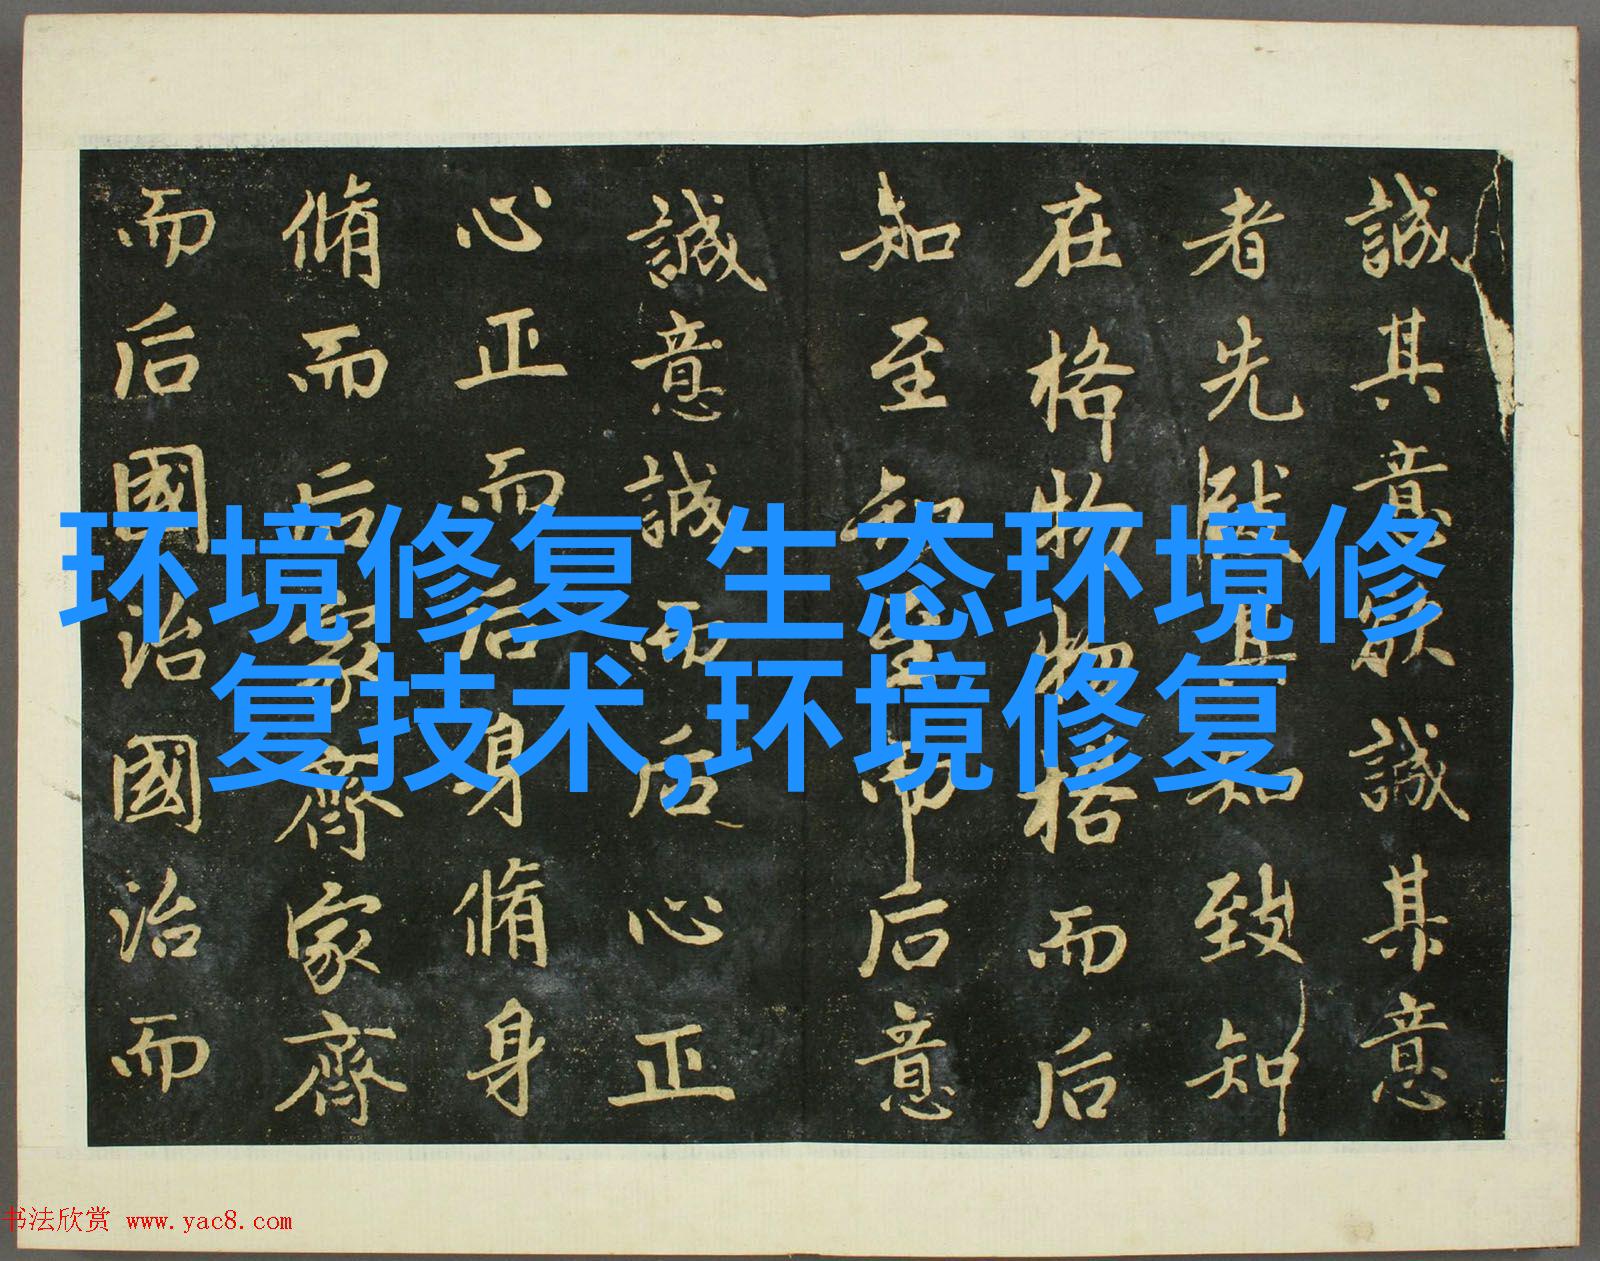 誠其意欲誠其意
者先致其知致知
在格物物格而后
知至知至而后意
誠意誠而后心正
心正而后身脩身
脩而后家齊家齊
而后國治國治而
环境修复,生态环境修
复技术,环境修复
书法欣赏 www.yac8.com